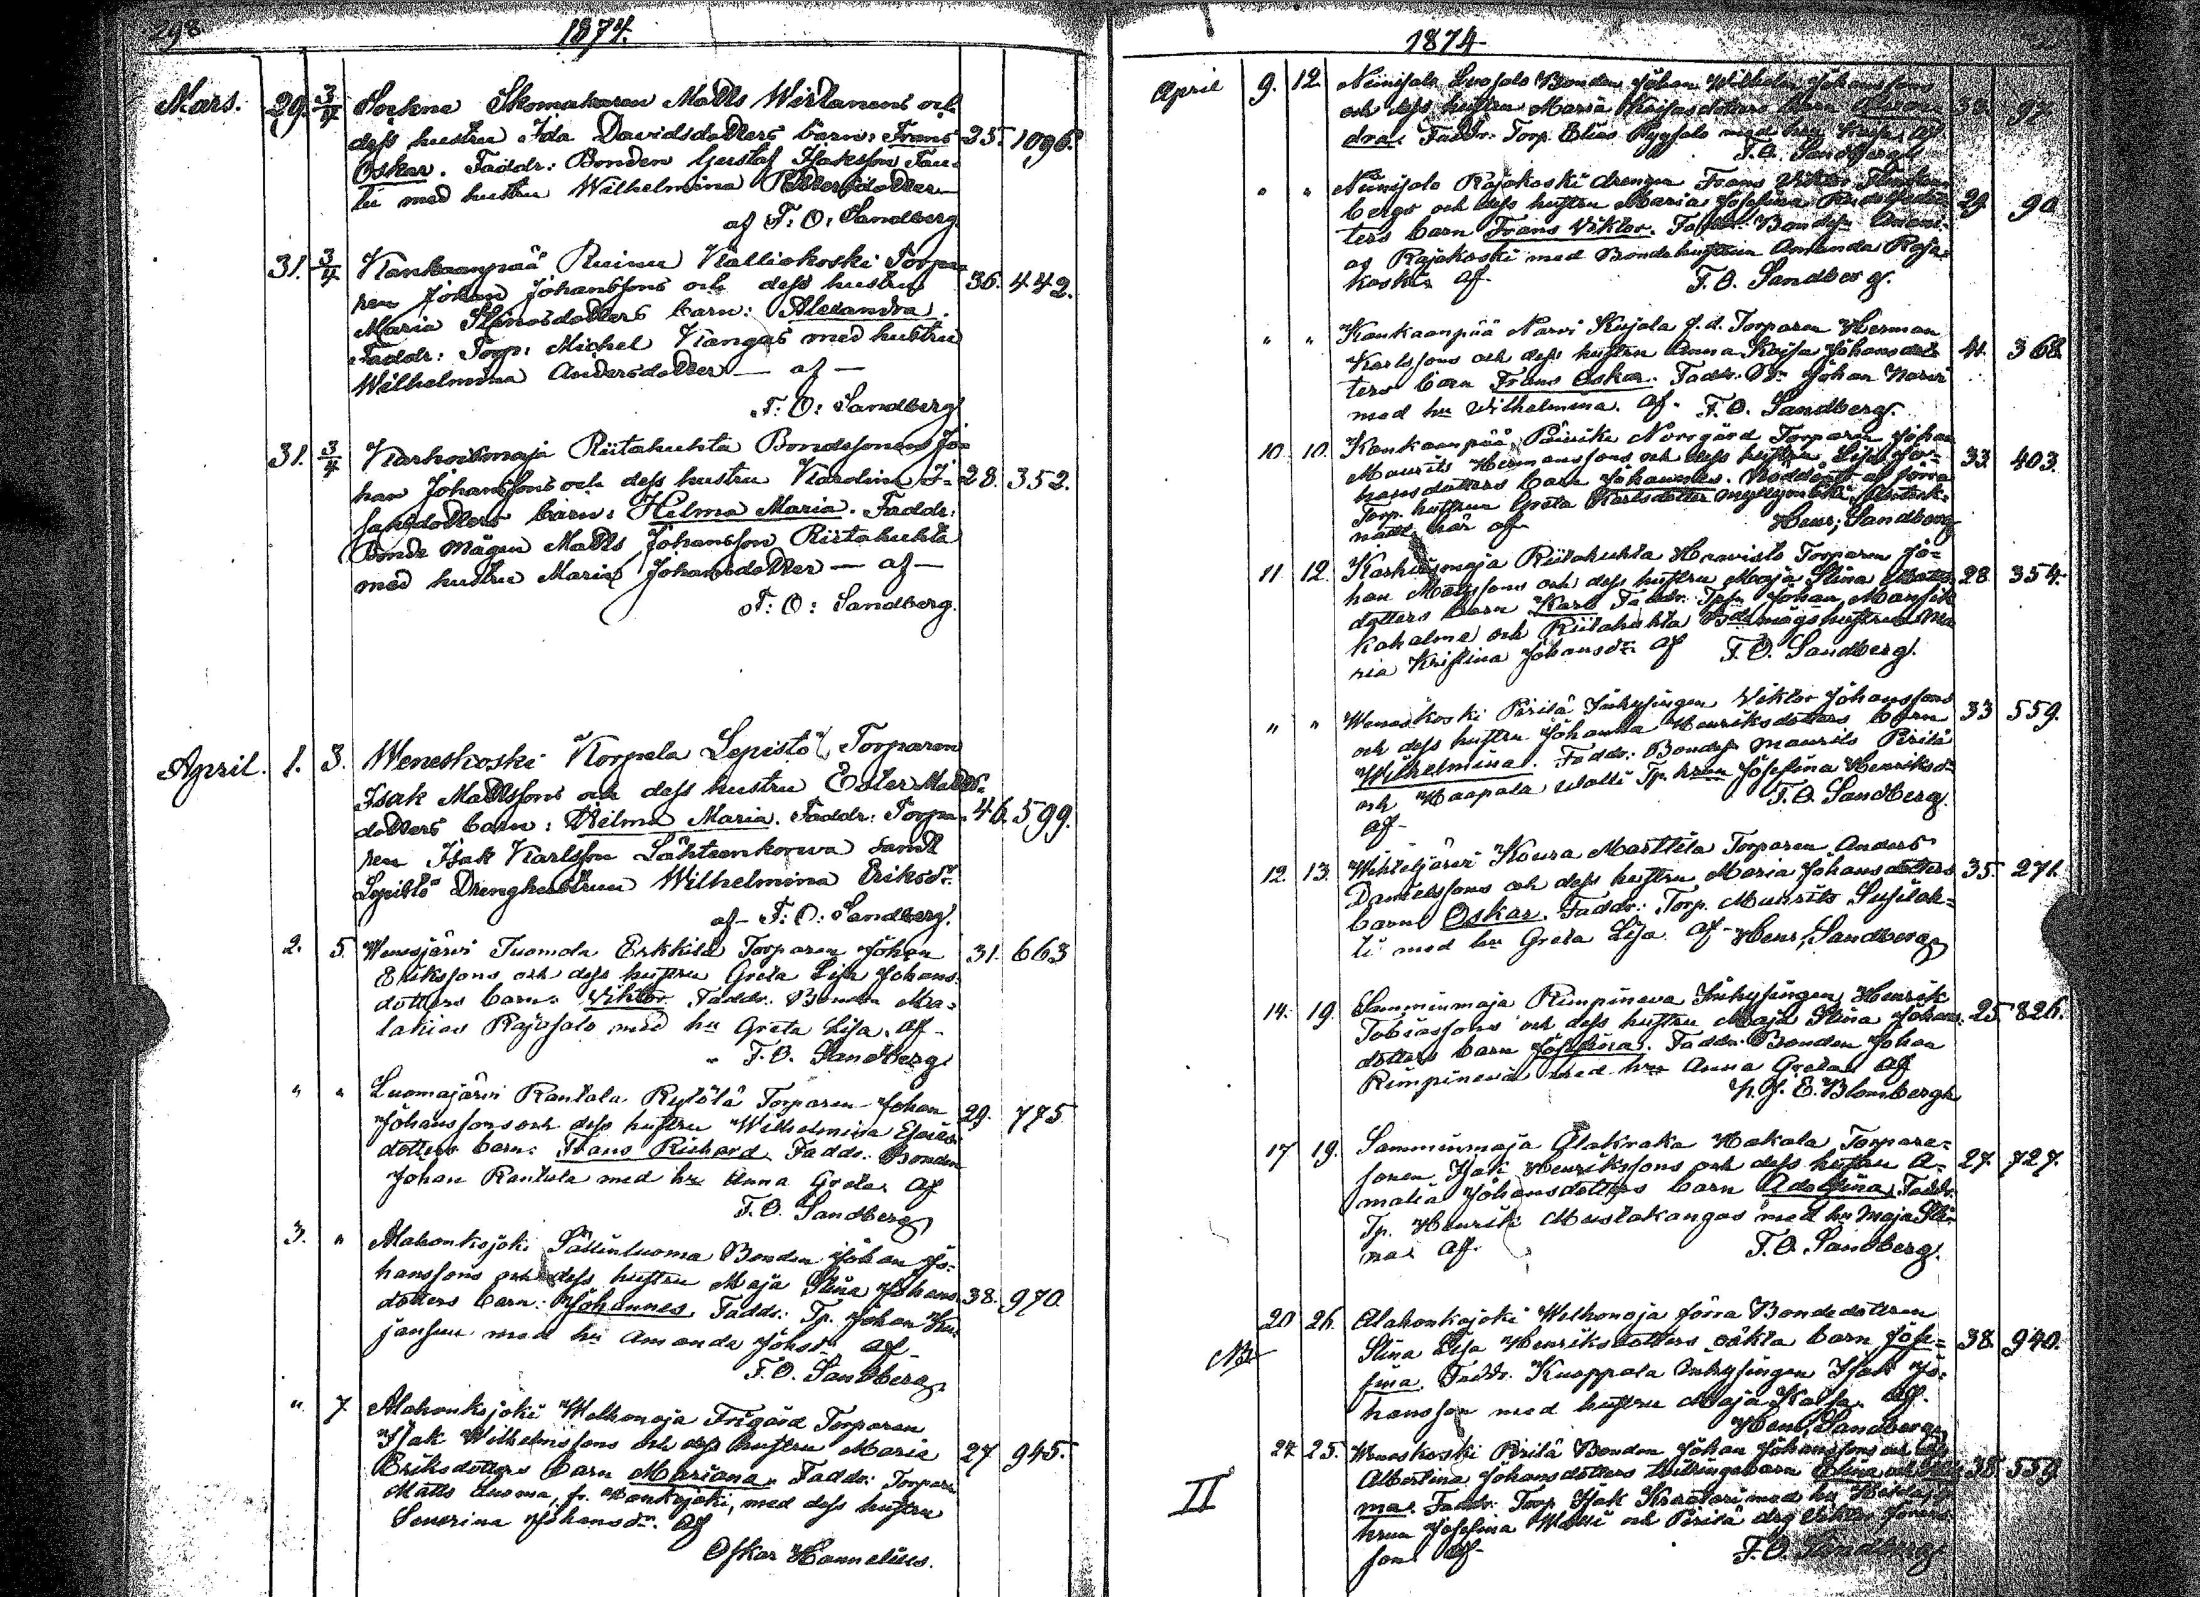 298
1874.
Mars. 29. 3/4 Sockne Skomakaren Matts Wirtanens och
dess hustru Ida Davidsdotters barn: Frans 25. 1096.
Oskar. Faddr: Bonden Gustaf Isaksson Tau-
lu med hustru Wilhelmina
af F: O: Sandberg.
31. 3/4 Kankaanpää Ruinu Kalliokoski Torpa-
ren Johan Johanssons och dess hustru 36. 442.
Maria barn: Alexandra.
Faddr: Torp: Michel Kangas med hustru
Wilhelmina Andersdotter — af —
F: O: Sandberg
31. 3/4 Karhoismaja Riitahuhta Bondesonen Jo-
han Johanssons och dess hustru Karolina I- 28. 352.
saksdotters barn: Hilma Maria. Faddr:
Bonde mågen Matts Johansson Riitahuhta
med hustru Maria Johansdotter — af —
F: O: Sandberg.
April. 1. 3. Weneskoski Korpela Lepistö Torparen
Isak Mattssons och dess hustru Ester Matts-
dotters barn: Hilma Maria. Faddr: Torpa- 46. 599.
ren Isak Karlsson Lähteenkorwa samt
Lepistö Drenghustrun Wilhelmina Eriksdr
af F: O: Sandberg.
2. 5. Wenesjärvi Tuomola Erkkilä Torparen Johan 31. 663
Erikssons och dess hustru Greta Lisa Johans-
dotters barn: Viktor. Faddr: Bonden Ma-
lakias Rajasalo med hu Greta Lisa. af
F. O. Sandberg
" " Luomajärvi Rantala Rytölä Torparen Johan 29. 775
Johanssons och dess hustru Wilhelmina Esaias-
dotters barn: Frans Richard. Faddr: Bonden
Johan Rantala med hu Anna Greta. af
F. O. Sandberg
3. " Alahonkajoki Sällinluoma Bonden Johan Jo-
hanssons och dess hustru Maja Stina Johans- 38. 970.
dotters barn: Johannes. Faddr: Tp. Johan
med hu Amanda Johsdr af
F. O. Sandberg
" 7. Alahonkajoki Welhonoja Frigård Torparen
Isak Wilhelmssons och dess hustru Maria 27. 945.
Eriksdotters barn Mariana. Faddr: Torparen
Matts Luoma, fr. Honkajoki, med dess hustru
Severina Johansdr. af
Oskar Hannelius.
1874
April 9. 12. Niinisalo Luosalo Bonden Johan Wilhelm Johanssons
och dess hustru Maria barn 38. 97.
dra. Faddr. Torp. Elias med hu Kaisa af
F. O. Sandberg
" " Niinisalo Rajakoski drengen Frans Viktor
bergs och dess hustru Maria Josefina 29. 90
ters barn Frans Viktor. Faddr:
as Rajakoski med Bondehustrun Amanda Raja-
koski. af F. O. Sandberg.
" " Kankaanpää Narvi Kujala f. d. Torparen Herman
Karlssons och dess hustru Anna Kajsa Johansdot- 41. 368.
ters barn Frans Oskar. Faddr: Johan Narvi
med hu Wilhelmina. af F. O. Sandberg.
10. 10. Kankaanpää Päiviku Norrgård Torparen Johan
Maurits Hermanssons och dess hustru Lisa Jo- 33. 403.
hansdotters barn Johannes. Nöddöpt af förra
Torp. hustrun Greta Karlsdotter
här af Henr: Sandberg
11. 12. Karhoismaja Riitahuhta Torparen Jo-
han Mattssons och dess hustru Maja Stina Matts- 28. 354.
dotters barn Karl. Faddr. Johan Mansik-
kahalme och Riitahuhta hustrun Ma-
ria Kristina Johansdr af F. O. Sandberg.
" " Weneskoski Pirilä Inhysingen Viktor Johanssons 33. 559.
och dess hustru Johanna Henriksdotters barn
Wilhelmina. Faddr: Maurits Pirilä
och Haapala Walli Tp. hrun Josefina Henriksdr
af F. O. Sandberg.
12. 13. Wihteljärvi Koura Marttila Torparen Anders
Danielssons och dess hustru Maria Johansdotters 35. 271.
barn Oskar. Faddr: Torp. Maurits
med hu Greta Lisa. af Henr: Sandberg
14. 19. Samminmaja Rimpineva Inhysingen Henrik
Tobiassons och dess hustru Maja Stina Johans- 25. 826.
dotters barn Josefina. Faddr: Bonden Johan
Rimpineva med hru Anna Greta. af
E. Blombergh
17. 19. Samminmaja Alakraka Hakala Torpare-
sonen Isak Henrikssons och dess hustru A- 27. 727.
malia Johansdotters barn Adolfina. Faddr.
Tp. Henrik Mustakangas med hu Maja Sti-
na. af. F. O. Sandberg.
20. 26. Alahonkajoki Welhonoja förra Bondedottren
NB. Stina Lisa Henriksdotters oäkta barn Jose- 38. 940.
fina. Faddr. Knappala Inhysingen Isak Jo-
hansson med hustru Maja Kajsa. af.
Henr: Sandberg
24. 25. Weneskoski Pirilä Bonden Johan Johanssons och
II Albertina Johansdotters tvillingabarn Elina och 38. 559.
ma. Faddr: Torp. Isak med hu
hrun Josefina Walli och Pirilä
son. af F. O. Sandberg